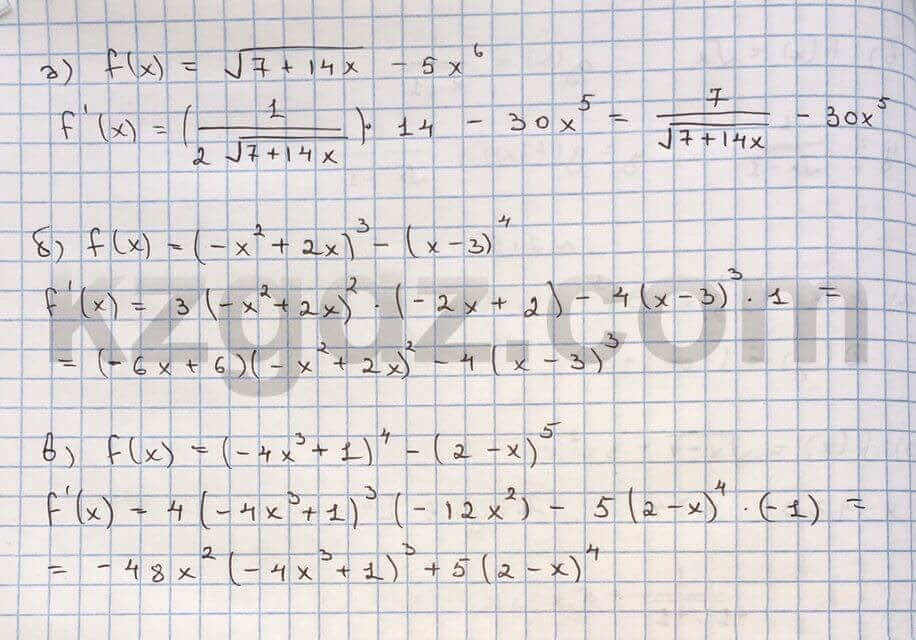 а) f(x) = √(7 + 14x) − 5x⁶
f'(x) = (1/(2√(7+14x)))· 14 − 30x⁵ = 7/√(7+14x) − 30x⁵
б) f(x) = (−x² + 2x)³ − (x−3)⁴
f'(x) = 3(−x²+2x)² · (−2x + 2) − 4(x−3)³ · 1 =
= (−6x + 6)(−x² + 2x)² − 4(x − 3)³
в) f(x) = (−4x³ + 1)⁴ − (2 − x)⁵
f'(x) = 4(−4x³+1)³(−12x²) − 5(2−x)⁴ · (−1) =
= −48x²(−4x³+1)³ + 5(2 − x)⁴
kzgdz.com